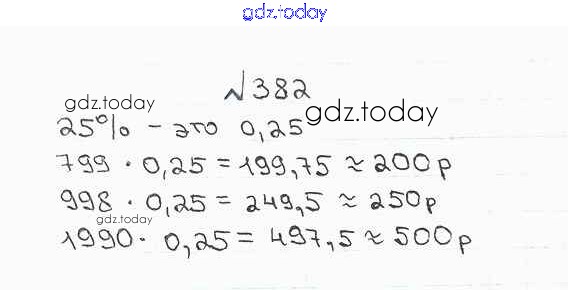 gdz.today
№382
gdz.today
gdz.today
25% - это 0,25
799 · 0,25 = 199,75 ≈ 200р
998 · 0,25 = 249,5 ≈ 250р
gdz.today
1990 · 0,25 = 497,5 ≈ 500р